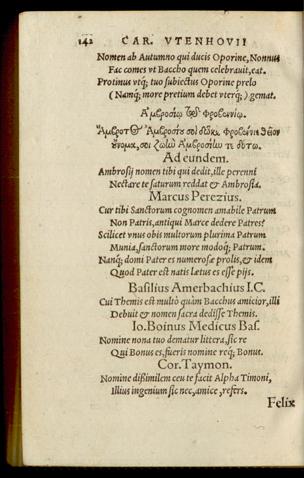 142 CAR. VTENHOVII
Nomen ab Autumno qui ducis Oporine, Nonnus
Fac comes vt Baccho quem celebrauit, eat.
Protinus vtq; tuo subiectus Oporine prelo
(Namq; more pretium debet vterq;) gemat.
Ἀμβροσίῳ τῷ Φροβωνίῳ.
Ἀμβροσίε σοι δῶκε Φροβώνιε
οὔνομα, σοι ζώῳ Ἀμβροσίῳ τι δότω.
Ad eundem.
Ambrosij nomen tibi qui dedit, ille perenni
Nectare te saturum reddat & Ambrosia.
Marcus Perezius.
Cur tibi Sanctorum cognomen amabile Patrum
Non Patris, antiqui Marce dedere Patres?
Scilicet vnus obis multorum plurima Patrum
Munia, sanctorum more modoq; Patrum.
Nanq; domi Pater es numerosæ prolis, & idem
Quod Pater est natis lætus es esse pijs.
Basilius Amerbachius I.C.
Cui Themis est multò quàm Bacchus amicior, illi
Debuit & nomen sacra dedisse Themis.
Io. Boinus Medicus Bas.
Nomine nona tuo dematur littera, sic re
Qui Bonus es, fueris nomine req; Bonus.
Cor. Taymon.
Nomine dißimilem ceu te facit Alpha Timoni,
Illius ingenium sic nec, amice, refers.
Felix